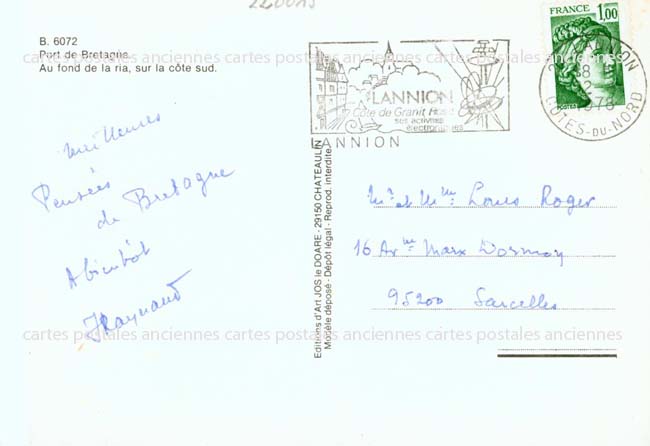 220015
B. 6072
Port de Bretagne.
Au fond de la ria, sur la côte sud.
cartes postales anciennes cartes postales anciennes cartes postales anciennes
LANNION
Côte de Granit Rose
ses activités
électroniques
LANNION
FRANCE
1,00
POSTES
LANNION
18 H
2
1978
CÔTES-DU-NORD
meilleures
Pensées
de Bretagne
A bientôt
JRaynaud
Editions d'Art JOS le DOARE - 29150 CHATEAULIN
Modèle déposé - Dépôt légal - Reprod. interdite
Mr et Mme Louis Roger
16 Ave Marx Dormoy
95200 Sarcelles
cartes postales anciennes cartes postales anciennes cartes postales anciennes